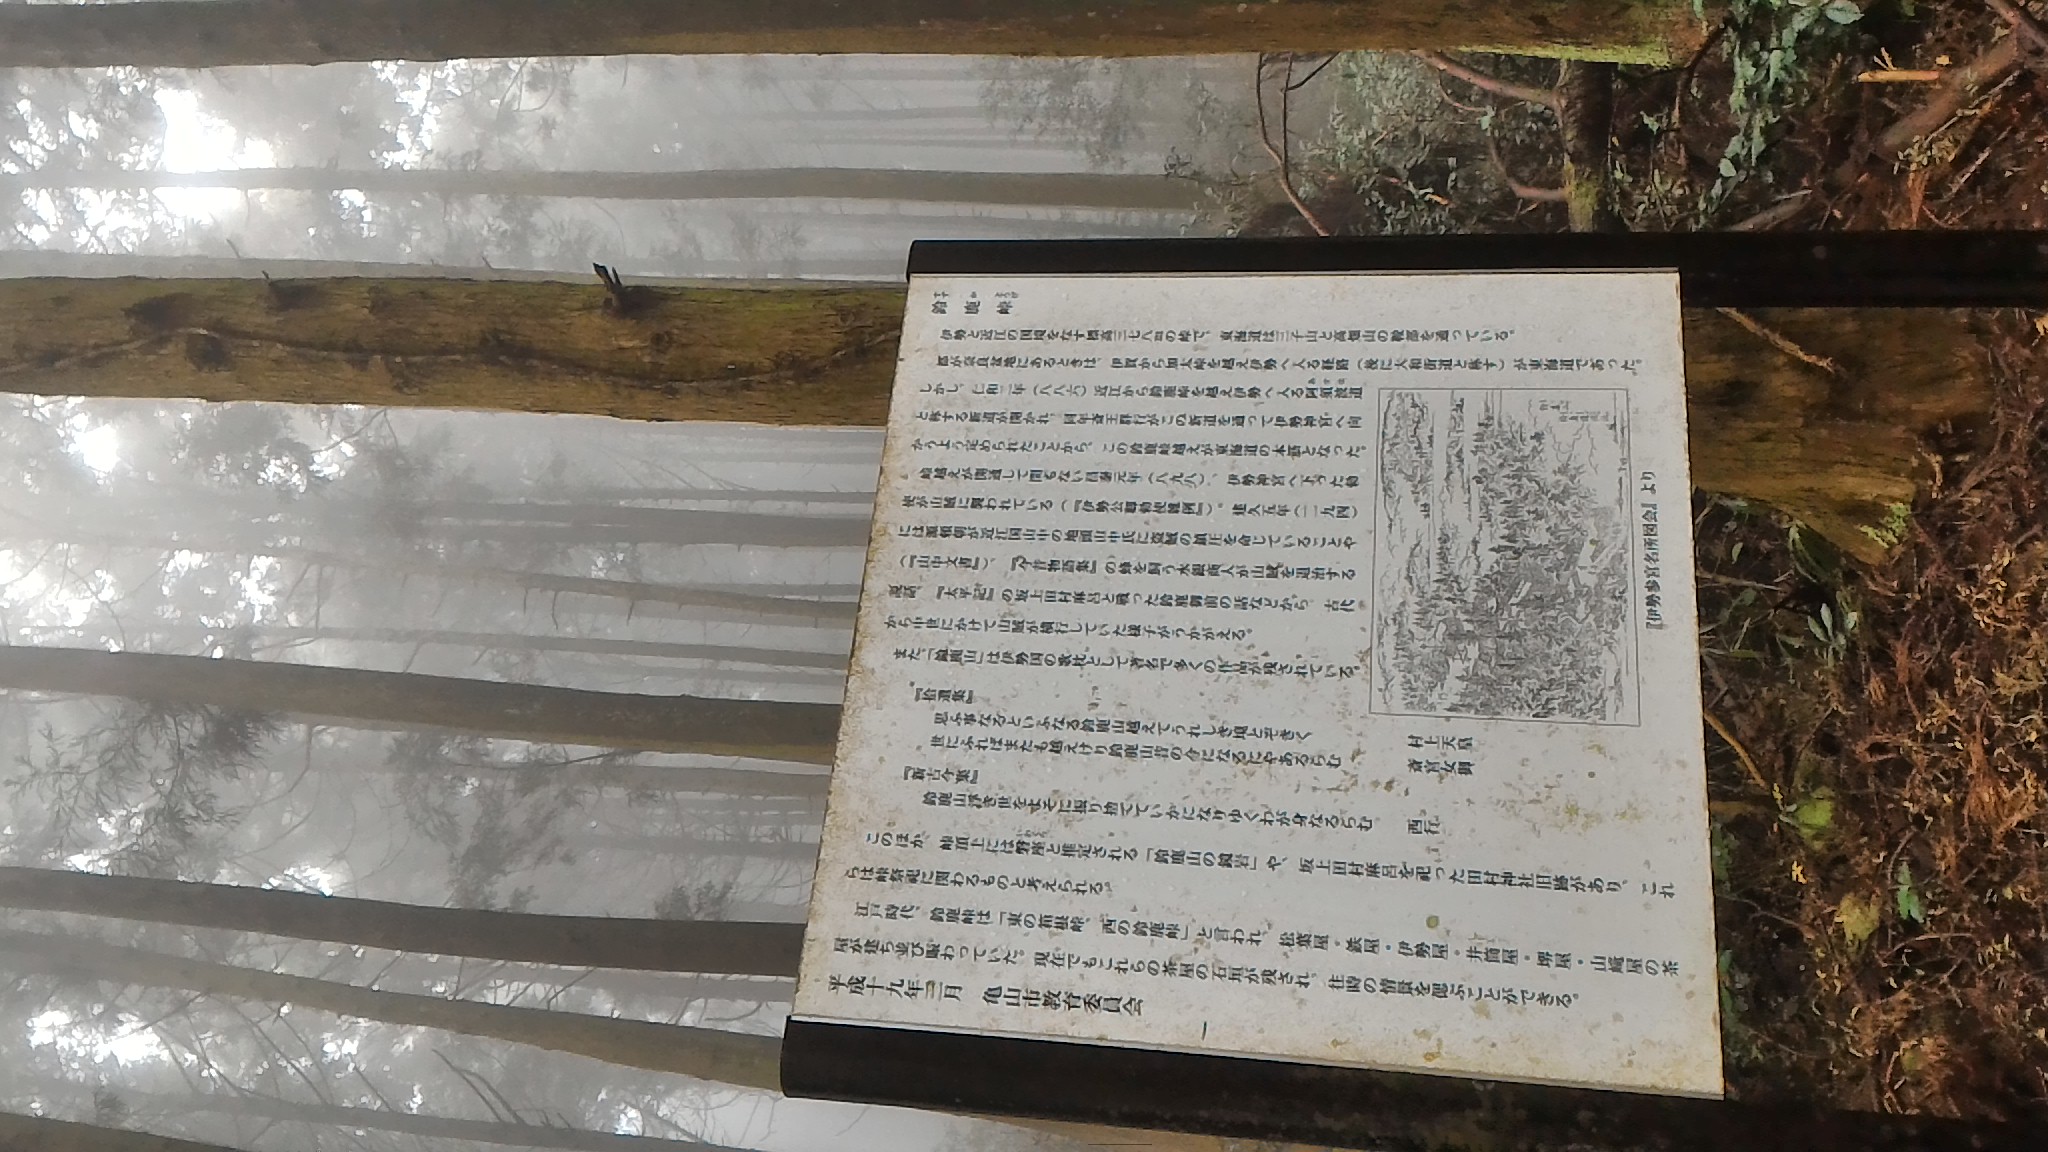 鈴鹿峠
伊勢と近江の国境をなす標高三七八mの峠で、東海道は三子山と高畑山の鞍部を通っている。
都が奈良盆地にあるときは、伊賀から加太峠を越え伊勢へ入る経路(後に大和街道と称す)が東海道であった。
しかし、仁和二年(八八六)近江から鈴鹿峠を越え伊勢へ入る阿須波道
と称する新道が開かれ、同年斎王群行がこの新道を通って伊勢神宮へ向
かうよう定められたことから、この鈴鹿峠越えが東海道の本筋となった。
峠越えが開通して間もない昌泰元年(八九八)、伊勢神宮へ下った勅
使が山賊に襲われている(『伊勢公卿勅使雑例』)。建久五年(一一九四)
には源頼朝が近江国山中の地頭山中氏に盗賊の鎮圧を命じていることや
(『山中文書』)、『今昔物語集』の蜂を飼う水銀商人が山賊を退治する
説話、『太平記』の坂上田村麻呂と戦った鈴鹿御前の話などから、古代
から中世にかけて山賊が横行していた様子がうかがえる。
また、「鈴鹿山」は伊勢国の歌枕として著名で多くの作品が残されている。
『拾遺集』
思ふ事なるといふなる鈴鹿山越えてうれしき境とぞきく 村上天皇
世にふればまたも越えけり鈴鹿山昔の今になるにやあるらむ 斎宮女御
『新古今集』
鈴鹿山浮き世をよそに振り捨てていかになりゆくわが身なるらむ 西行
このほか、峠頂上には磐座と推定される「鈴鹿山の鏡岩」や、坂上田村麻呂を祀った田村神社旧跡があり、これ
らは峠祭祀に関わるものと考えられる。
江戸時代、鈴鹿峠は「東の箱根峠、西の鈴鹿峠」と言われ、松葉屋・鉄屋・伊勢屋・井筒屋・堺屋・山﨑屋の茶
屋が建ち並び賑わっていた。現在でもこれらの茶屋の石垣が残され、往時の情景を偲ぶことができる。
平成十九年三月 亀山市教育委員会
『伊勢参宮名所図会』より